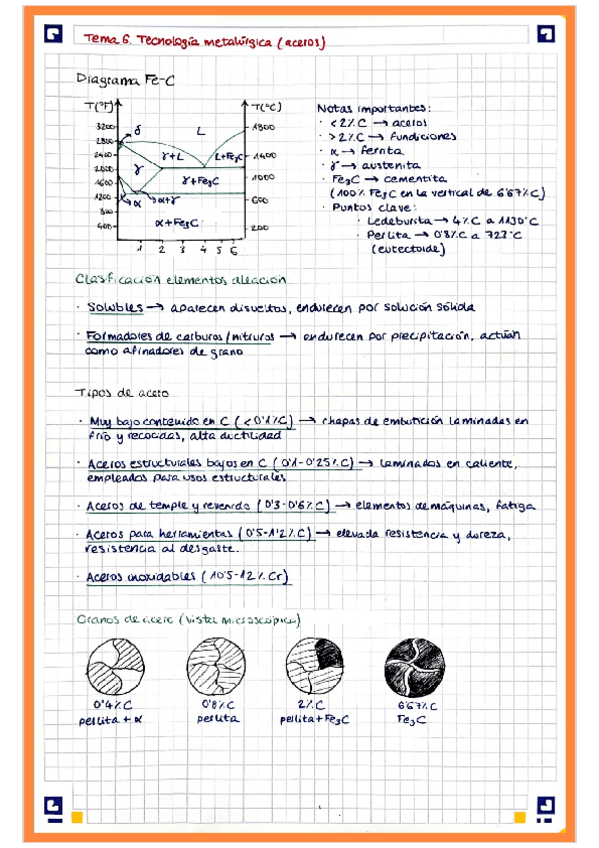 Tema 6. Tecnología metalúrgica (aceros)
Diagrama Fe-C
T(°F)
T(°C)
3200
2800
2400
2000
1600
1200
800
400
1800
1400
1000
600
200
δ
L
γ+L
L+Fe3C
γ
γ+Fe3C
α
α+γ
α+Fe3C
1 2 3 4 5 6
Notas importantes:
· <2%C → aceros
· >2%C → fundiciones
· α → ferrita
· γ → austenita
· Fe3C → cementita
(100% Fe3C en la vertical de 6'67%C)
· Puntos clave:
· Ledeburita → 4%C a 1130°C
· Perlita → 0'8%C a 723°C
(eutectoide)
Clasificación elementos aleación
· Solubles → aparecen disueltos, endurecen por solución sólida
· Formadores de carburos/nitruros → endurecen por precipitación, actúan
como afinadores de grano
Tipos de acero
· Muy bajo contenido en C (<0'1%C) → chapas de embutición laminadas en
frío y recocidas, alta ductilidad
· Aceros estructurales bajos en C (0'1-0'25%C) → laminados en caliente,
empleados para usos estructurales
· Aceros de temple y revenido (0'3-0'6%C) → elementos de máquinas, fatiga
· Aceros para herramientas (0'5-1'2%C) → elevada resistencia y dureza,
resistencia al desgaste.
· Aceros inoxidables (10'5-12%Cr)
Granos de acero (vista microscópica)
0'4%C
perlita + α
0'8%C
perlita
2%C
perlita + Fe3C
6'67%C
Fe3C